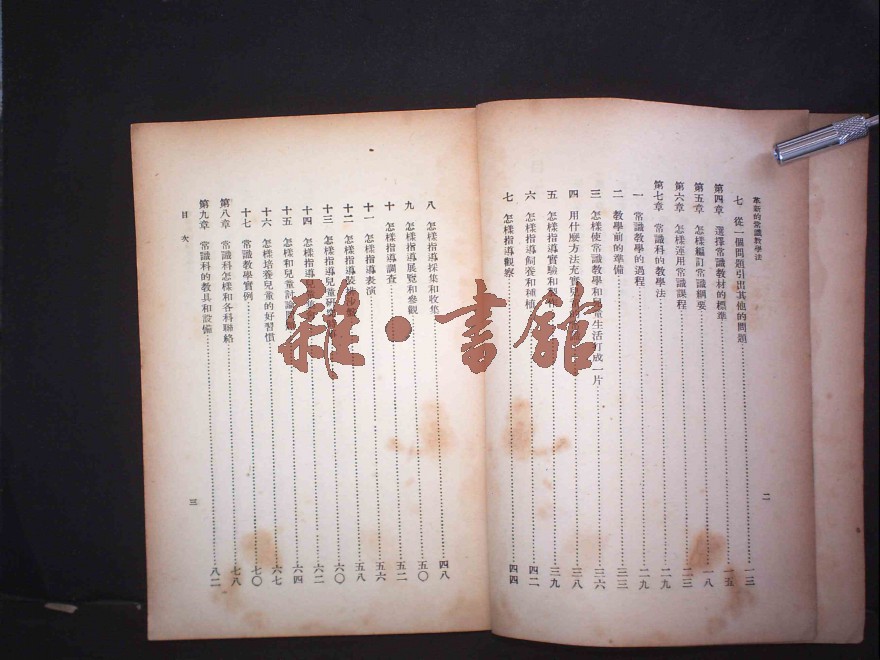 革新的常識教學法
二
七 從一個問題引出其他的問題 一三
第四章 選擇常識教材的標準 一五
第五章 怎樣編訂常識綱要 一八
第六章 怎樣運用常識課程 二三
第七章 常識科的教學法 二九
一 常識教學的過程 二九
二 教學前的準備 三三
三 怎樣使常識教學和兒童生活打成一片 三六
四 用什麼方法充實兒 三八
五 怎樣指導實驗和製作 三九
六 怎樣指導飼養和種植 四二
七 怎樣指導觀察 四四
八 怎樣指導採集和收集 四八
九 怎樣指導展覽和參觀 五〇
十 怎樣指導調查 五二
十一 怎樣指導表演 五六
十二 怎樣指導裝排沙盤 五八
十三 怎樣指導兒童研究 六〇
十四 怎樣指導兒童 六二
十五 怎樣和兒童討論問題 六四
十六 怎樣培養兒童的好習慣 六七
十七 常識教學實例 七〇
第八章 常識科怎樣和各科聯絡 七八
第九章 常識科的教具和設備 八二
目次
三
雜·書館